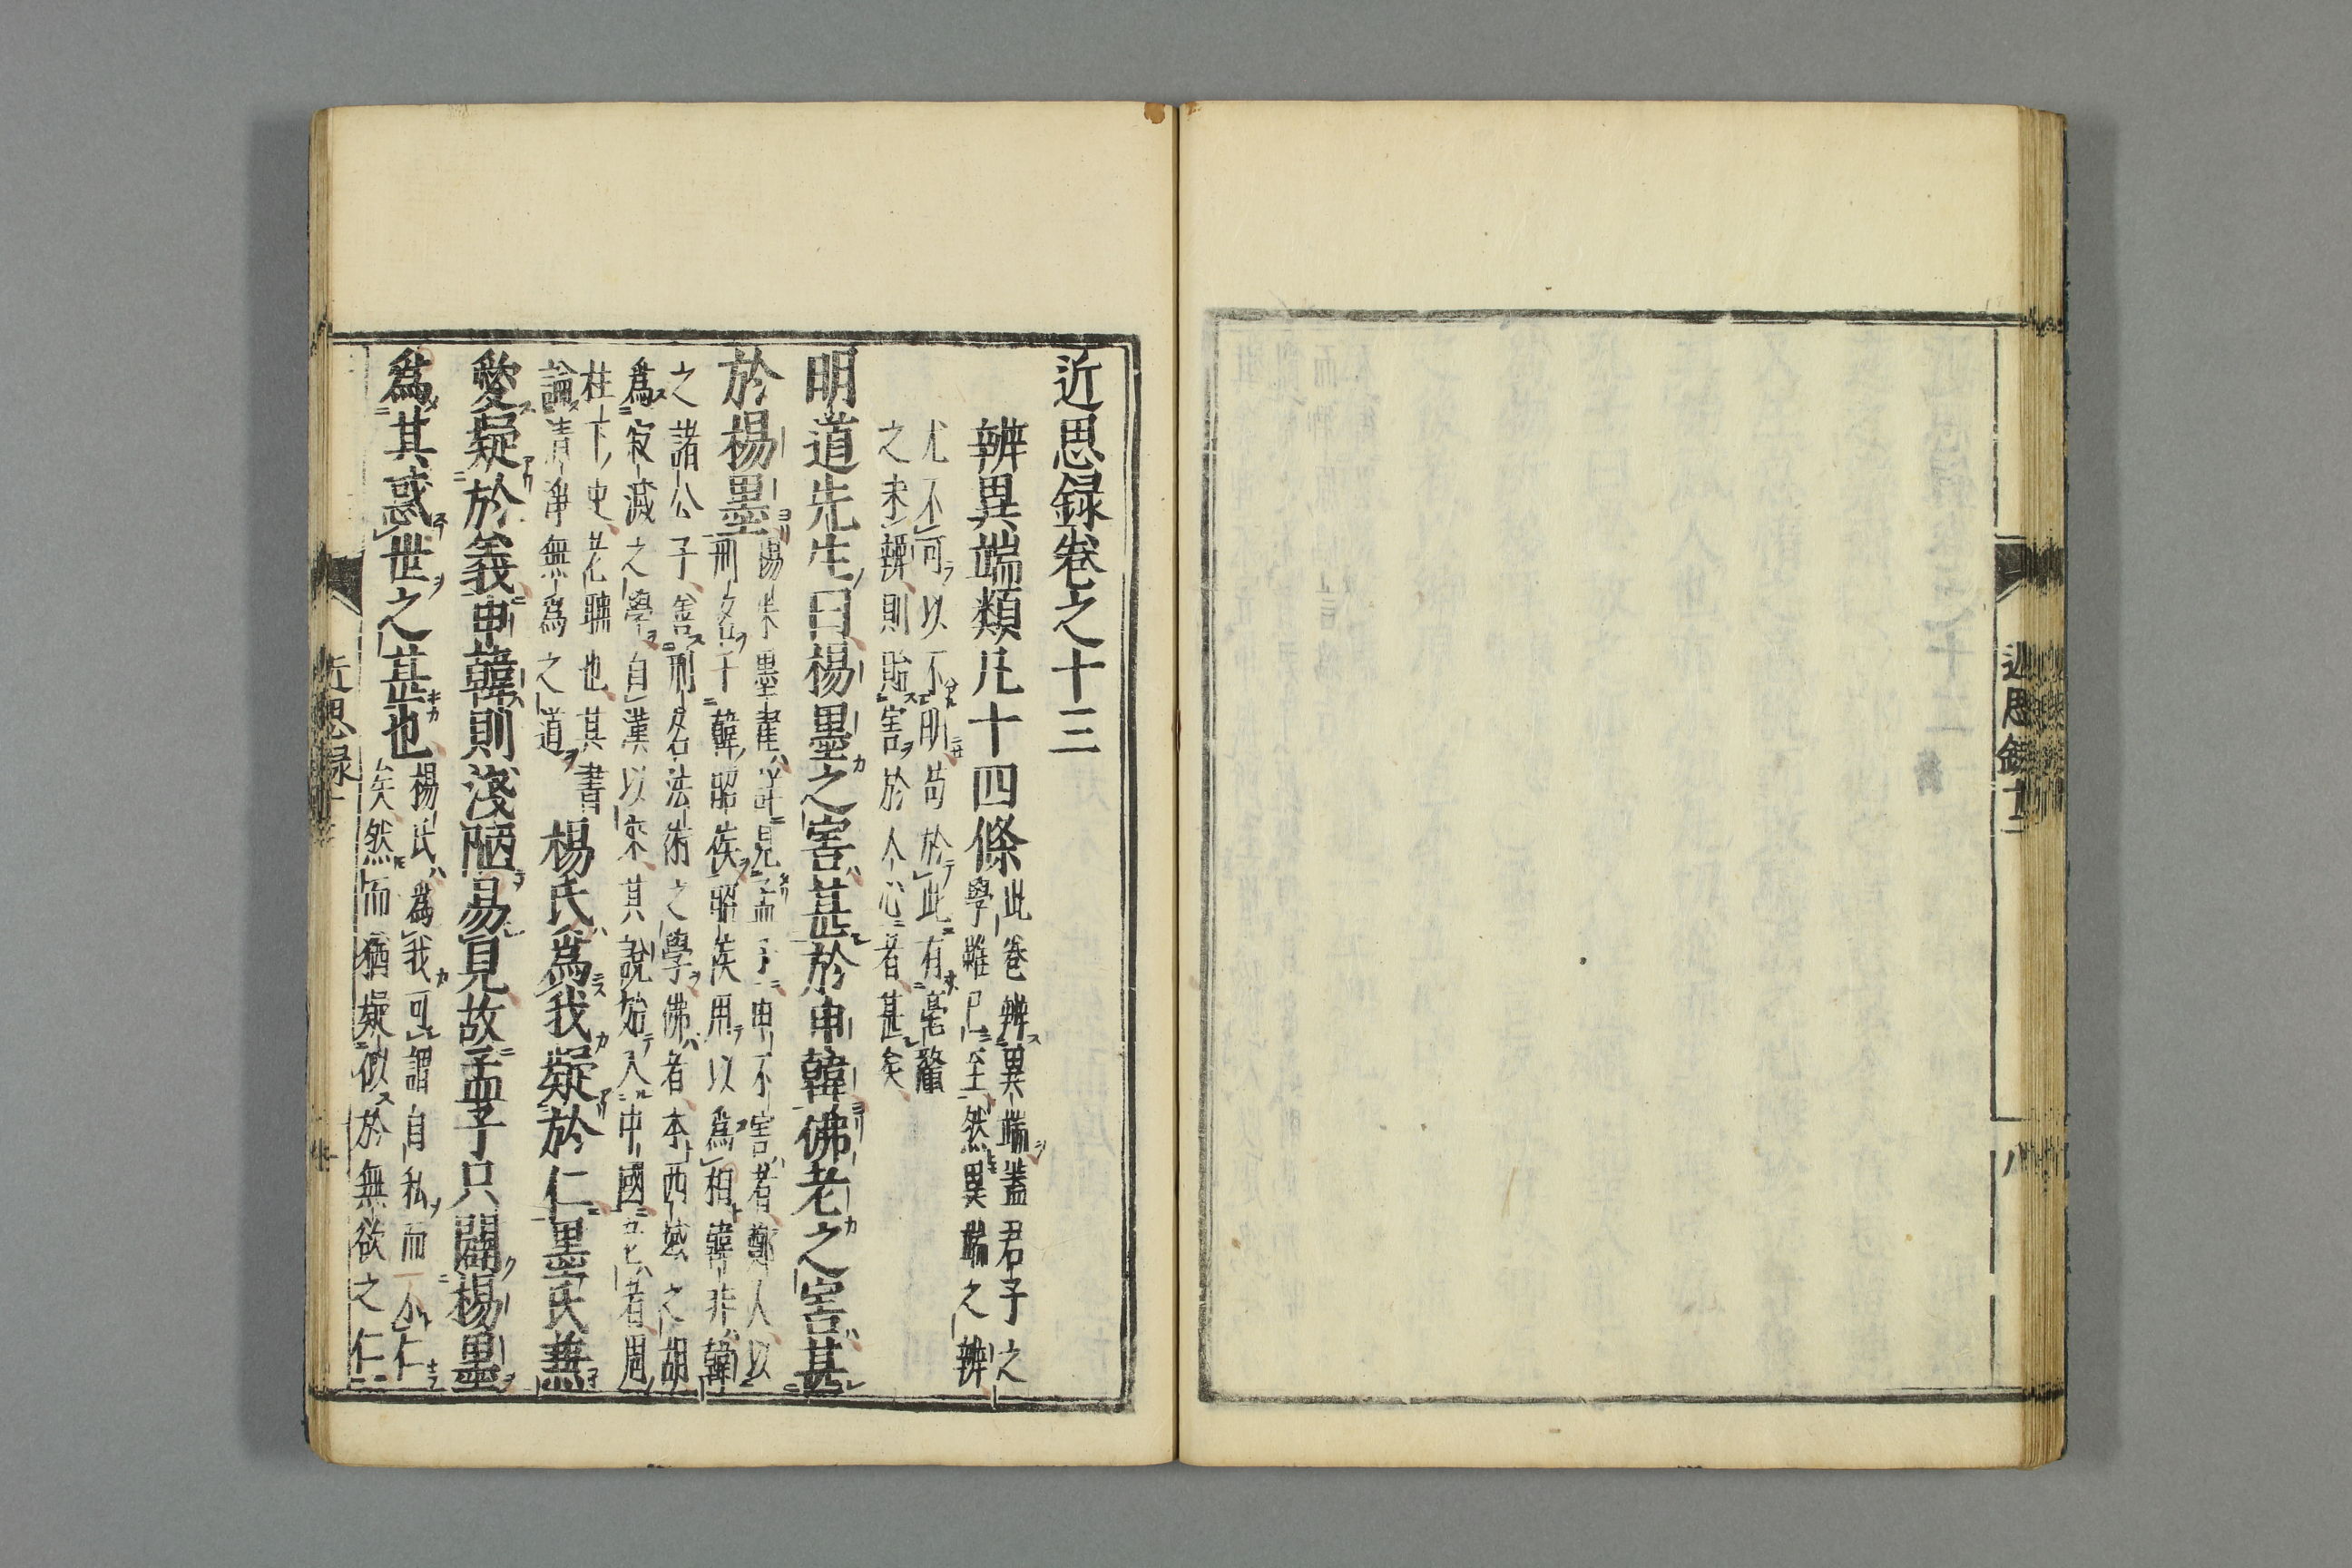 近思錄十二
八
近思録卷之十三
辨異端類凡十四條此卷辨異端蓋君子之
學雖已至然異端之辨
尤不可以不明苟於此有毫釐
之未辨則貽害於人心者甚矣
明道先生曰楊墨之害甚於申韓佛老之害甚
於楊墨楊朱墨翟詳見孟子申不害者鄭人以
刑名干韓昭侯昭侯用以爲相韓非韓
之諸公子善刑名法術之學佛者本西域之胡
爲寂滅之學自漢以來其說始入中國老者周
柱下史老聃也其書
論清淨無爲之道
楊氏爲我疑於仁墨氏兼
愛疑於義申韓則淺陋易見故孟子只闢楊墨
爲其惑世之甚也楊氏爲我可謂自私而不仁
矣然而猶疑似於無欲之仁
近思録